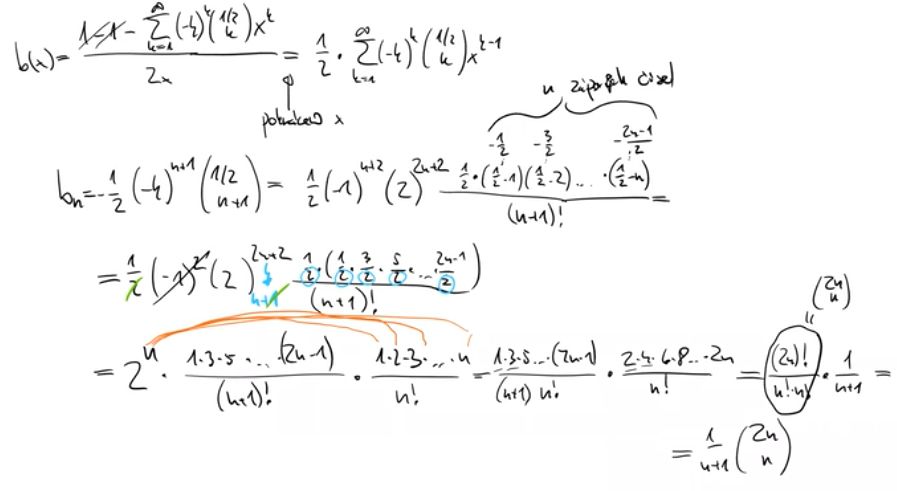 b(x) = (1 - 1 - ∑_{k=1}^{∞} (-4)^k (1/2 choose k) x^k) / 2x = 1/2 · ∑_{k=1}^{∞} (-4)^k (1/2 choose k) x^{k-1}
x
n záporných čísel
-1/2 -3/2 -(2n-1)/2
b_n = -1/2 (-4)^{n+1} (1/2 choose n+1) = 1/2 (-1)^{n+2} (2)^{2n+2} (1/2 · (1/2 - 1)(1/2 - 2) ... · (1/2 - n)) / (n+1)! =
= 1/2 (-1)^2 (2)^{2n+2} (1/2 · (1/2 · 3/2 · 5/2 · ... (2n-1)/2)) / (n+1)!
n+1
(2n choose n)
= 2^n · (1·3·5· ... (2n-1)) / (n+1)! · (1·2·3· ... n) / n! = (1·3·5 ... · (2n-1)) / ((n+1) n!) · (2·4·6·8 ... 2n) / n! = (2n)! / (n!·n!) · 1/(n+1) =
= 1/(n+1) (2n choose n)